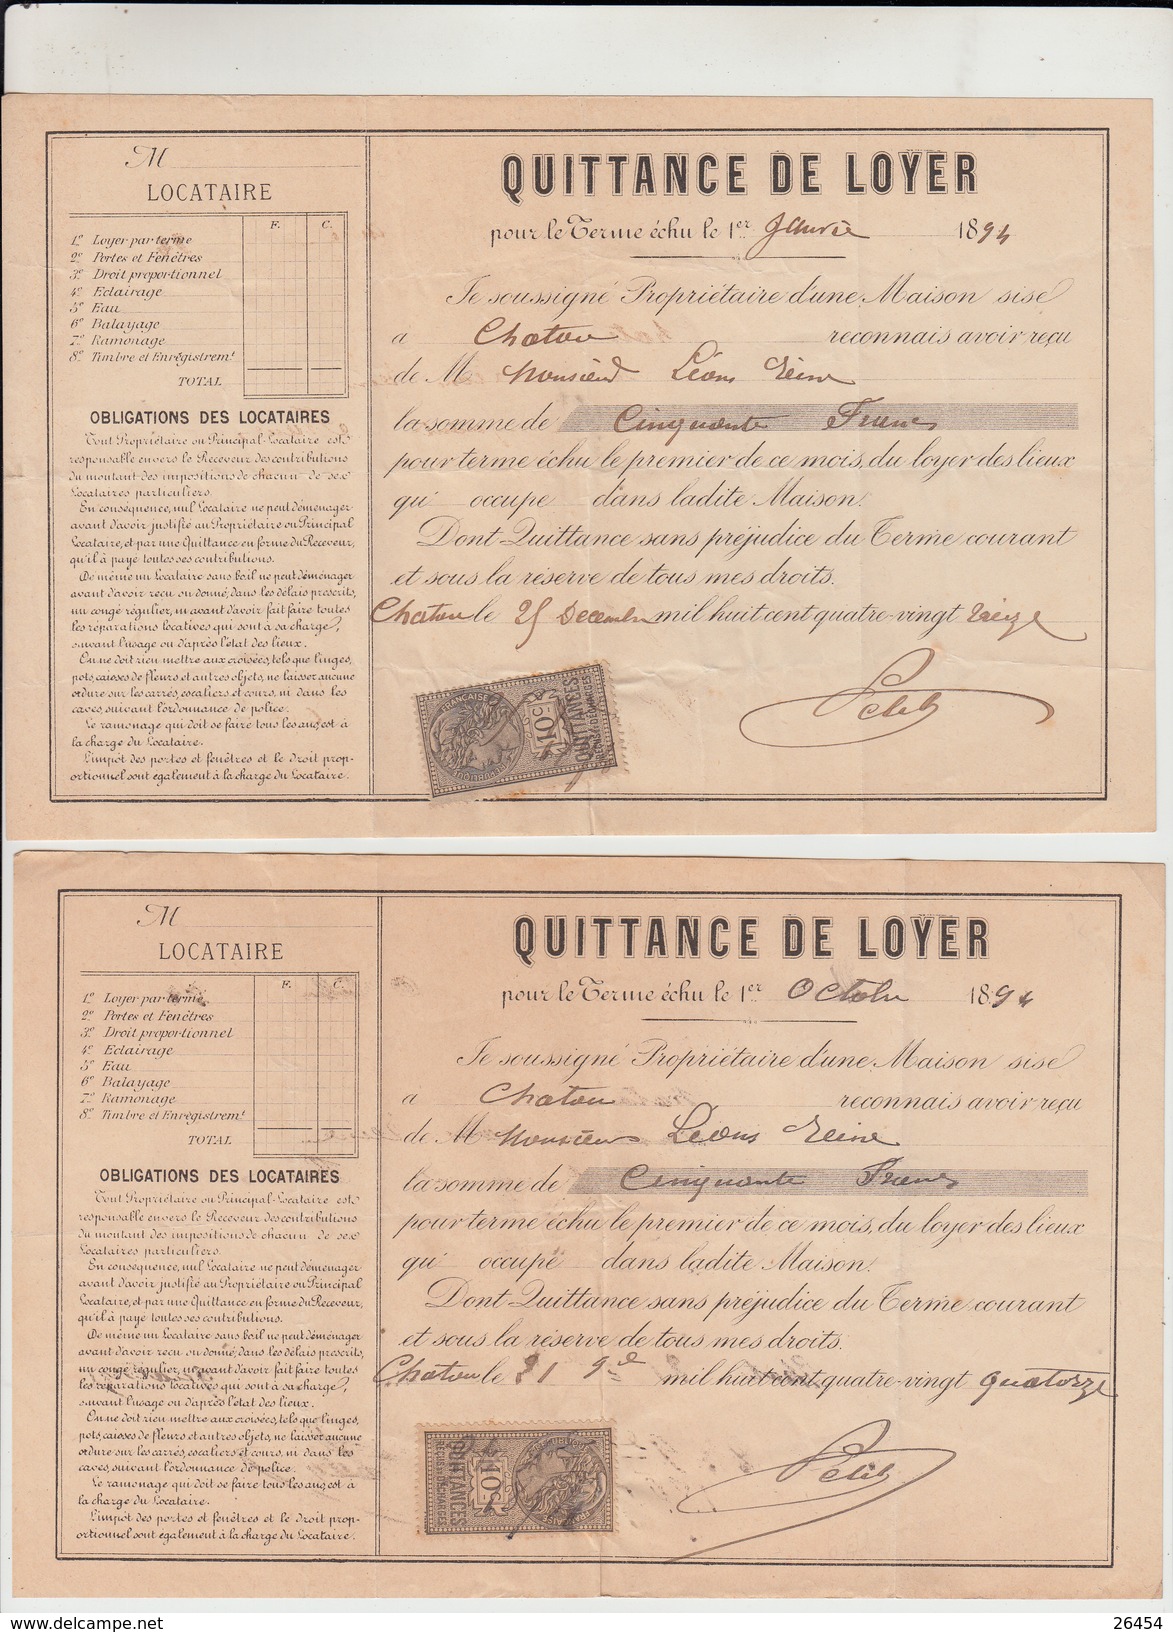 M
LOCATAIRE
F. C.
1º Loyer par terme
2º Portes et Fenêtres
3º Droit proportionnel
4º Eclairage
5º Eau
6º Balayage
7º Ramonage
8º Timbre et Enrégistremt
TOTAL
OBLIGATIONS DES LOCATAIRES
Tout Propriétaire ou Principal-Locataire est
responsable envers le Receveur des contributions
du montant des impositions de chacun de ses
Locataires particuliers.
En conséquence, nul Locataire ne peut déménager
avant d'avoir justifié au Propriétaire ou Principal
Locataire, et par une Quittance en forme du Receveur,
qu'il a payé toutes ses contributions.
De même un Locataire sans bail ne peut déménager
avant d'avoir reçu ou donné, dans les délais prescrits,
un congé régulier, ni avant d'avoir fait faire toutes
les réparations locatives qui sont à sa charge,
suivant l'usage ou d'après l'état des lieux.
On ne doit rien mettre aux croisées, tels que linges,
pots, caisses de fleurs et autres objets, ne laisser aucune
ordure sur les carrés, escaliers et cours, ni dans les
caves, suivant l'ordonnance de police.
Le ramonage qui doit se faire tous les ans, est à
la charge du Locataire.
L'impôt des portes et fenêtres et le droit prop-
ortionnel sont également à la charge du Locataire.
QUITTANCE DE LOYER
pour le Terme échu le 1er Janvier 1894
Je soussigné Propriétaire d'une Maison sise
a Chatou reconnais avoir reçu
de M Monsieur Léons Reine
la somme de Cinquante Francs
pour terme échu le premier de ce mois, du loyer des lieux
qu' occupe dans ladite Maison.
Dont Quittance sans préjudice du Terme courant
et sous la réserve de tous mes droits.
Chatou le 25 Decembre mil huit cent quatre-vingt treize
Petit
RÉPUBLIQUE FRANÇAISE
10 C
QUITTANCES
REÇUS & DÉCHARGES
M
LOCATAIRE
F. C.
1º Loyer par terme
2º Portes et Fenêtres
3º Droit proportionnel
4º Eclairage
5º Eau
6º Balayage
7º Ramonage
8º Timbre et Enrégistremt
TOTAL
OBLIGATIONS DES LOCATAIRES
Tout Propriétaire ou Principal-Locataire est
responsable envers le Receveur des contributions
du montant des impositions de chacun de ses
Locataires particuliers.
En conséquence, nul Locataire ne peut déménager
avant d'avoir justifié au Propriétaire ou Principal
Locataire, et par une Quittance en forme du Receveur,
qu'il a payé toutes ses contributions.
De même un Locataire sans bail ne peut déménager
avant d'avoir reçu ou donné, dans les délais prescrits,
un congé régulier, ni avant d'avoir fait faire toutes
les réparations locatives qui sont à sa charge,
suivant l'usage ou d'après l'état des lieux.
On ne doit rien mettre aux croisées, tels que linges,
pots, caisses de fleurs et autres objets, ne laisser aucune
ordure sur les carrés, escaliers et cours, ni dans les
caves, suivant l'ordonnance de police.
Le ramonage qui doit se faire tous les ans, est à
la charge du Locataire.
L'impôt des portes et fenêtres et le droit prop-
ortionnel sont également à la charge du Locataire.
QUITTANCE DE LOYER
pour le Terme échu le 1er Octobre 1894
Je soussigné Propriétaire d'une Maison sise
a Chatou reconnais avoir reçu
de M Monsieur Léons Reine
la somme de Cinquante Francs
pour terme échu le premier de ce mois, du loyer des lieux
qu' occupe dans ladite Maison.
Dont Quittance sans préjudice du Terme courant
et sous la réserve de tous mes droits.
Chatou le mil huit cent quatre-vingt quatorze
Petit
RÉPUBLIQUE FRANÇAISE
10 C
QUITTANCES
REÇUS & DÉCHARGES
www.delcampe.net
petitjean
26454